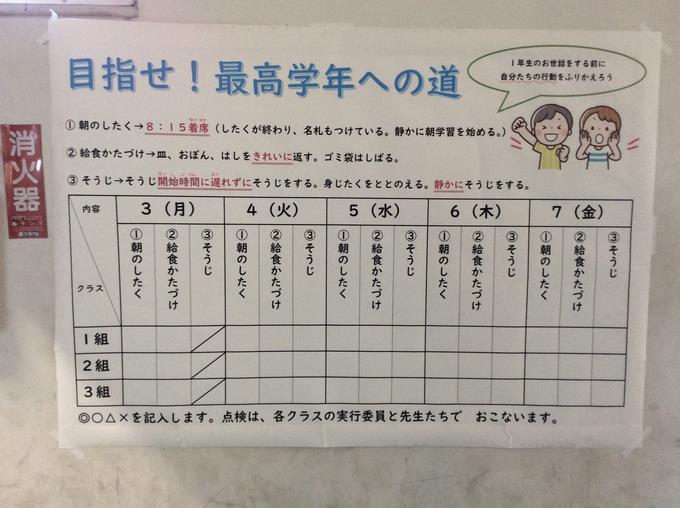 目指せ！最高学年への道
1年生のお世話をする前に
自分たちの行動をふりかえろう
① 朝のしたく→８：１５着席（したくが終わり、名札もつけている。静かに朝学習を始める。）
② 給食かたづけ→皿、おぼん、はしをきれいに返す。ゴミ袋はしばる。
③ そうじ→そうじ開始時間に遅れずにそうじをする。身じたくをととのえる。静かにそうじをする。
内容 ３（月） ４（火） ５（水） ６（木） ７（金）
クラス ①朝のしたく ②給食かたづけ ③そうじ ①朝のしたく ②給食かたづけ ③そうじ ①朝のしたく ②給食かたづけ ③そうじ ①朝のしたく ②給食かたづけ ③そうじ ①朝のしたく ②給食かたづけ ③そうじ
１組
２組
３組
◎○△×を記入します。点検は、各クラスの実行委員と先生たちで　おこないます。
消火器